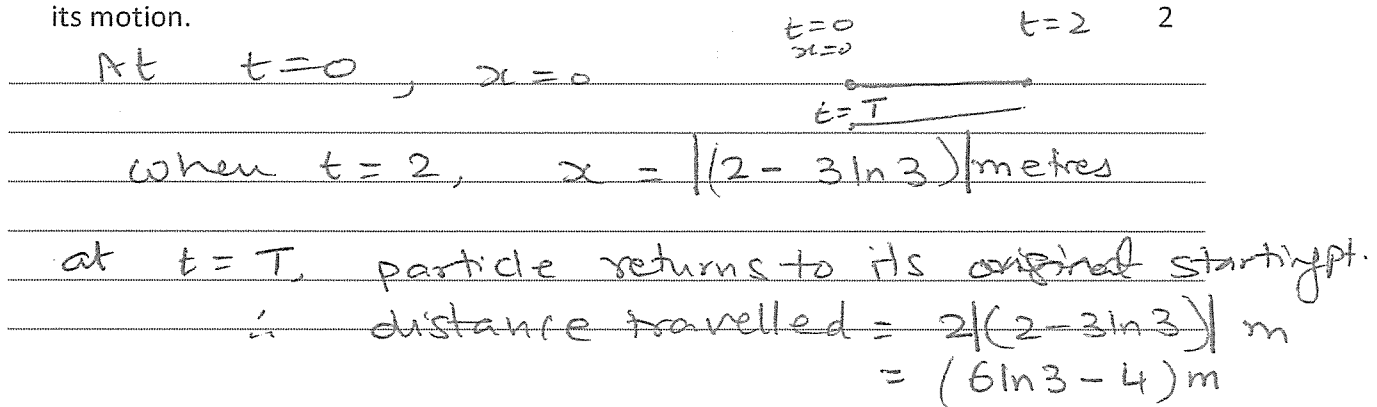 its motion. 2
t=0 t=2
x=0
At t=0, x=0
t=T
when t=2, x = |(2-3ln3)| metres
at t=T, particle returns to its original starting pt.
∴ distance travelled = 2|(2-3ln3)| m
= (6ln3-4)m